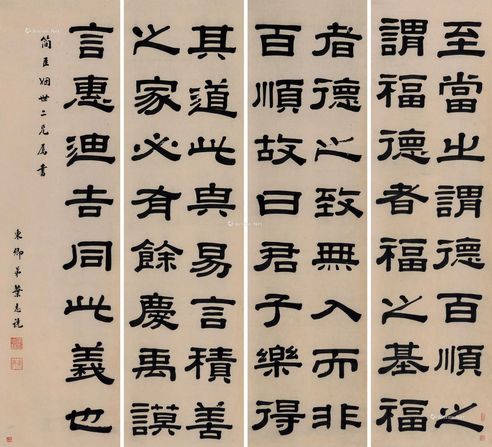 至當之謂德百順之
謂福德者福之基福
者德之致無入而非
百順故曰君子樂得
其道此與易言積善
之家必有餘慶禹謨
言惠迪吉同此義也
簡臣姻世二兄屬書
東卿弟葉志詵